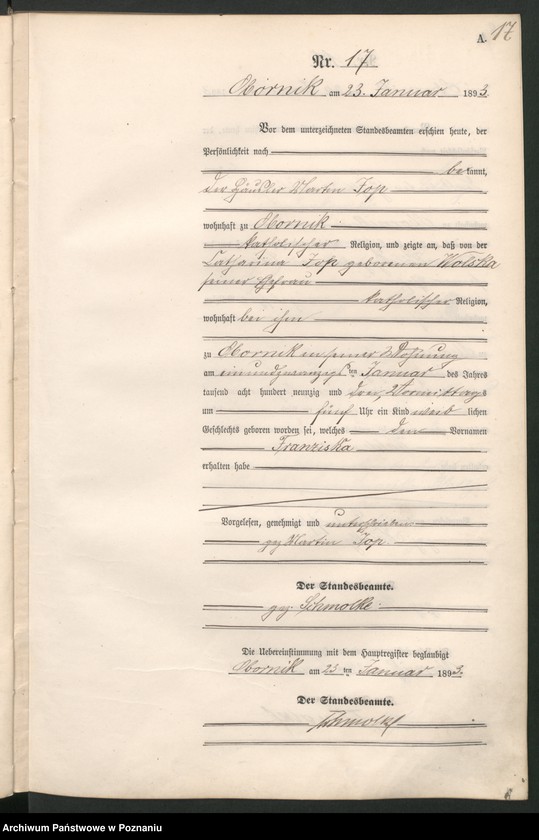 A. 17
Nr. 17
Obornik am 23. Januar 1893.
Vor dem unterzeichneten Standesbeamten erschien heute, der
Persönlichkeit nach
be kannt,
der Häusler Martin Top
wohnhaft zu Obornik
katholischer Religion, und zeigte an, daß von der
Catharina Top geborenen Wolska
seiner Ehefrau
katholischer Religion,
wohnhaft bei ihm
zu Obornik in seiner Wohnung
am einundzwanzigsten Januar des Jahres
tausend acht hundert neunzig und drei, Vormittags
um fünf Uhr ein Kind weib lichen
Geschlechts geboren worden sei, welches den Vornamen
Franziska
erhalten habe
Vorgelesen, genehmigt und unterschrieben
gez. Martin Top.
Der Standesbeamte.
gez. Schmolke.
Die Uebereinstimmung mit dem Hauptregister beglaubigt
Obornik am 23 ten Januar 1893.
Der Standesbeamte.
Schmolke
Archiwum Państwowe w Poznaniu